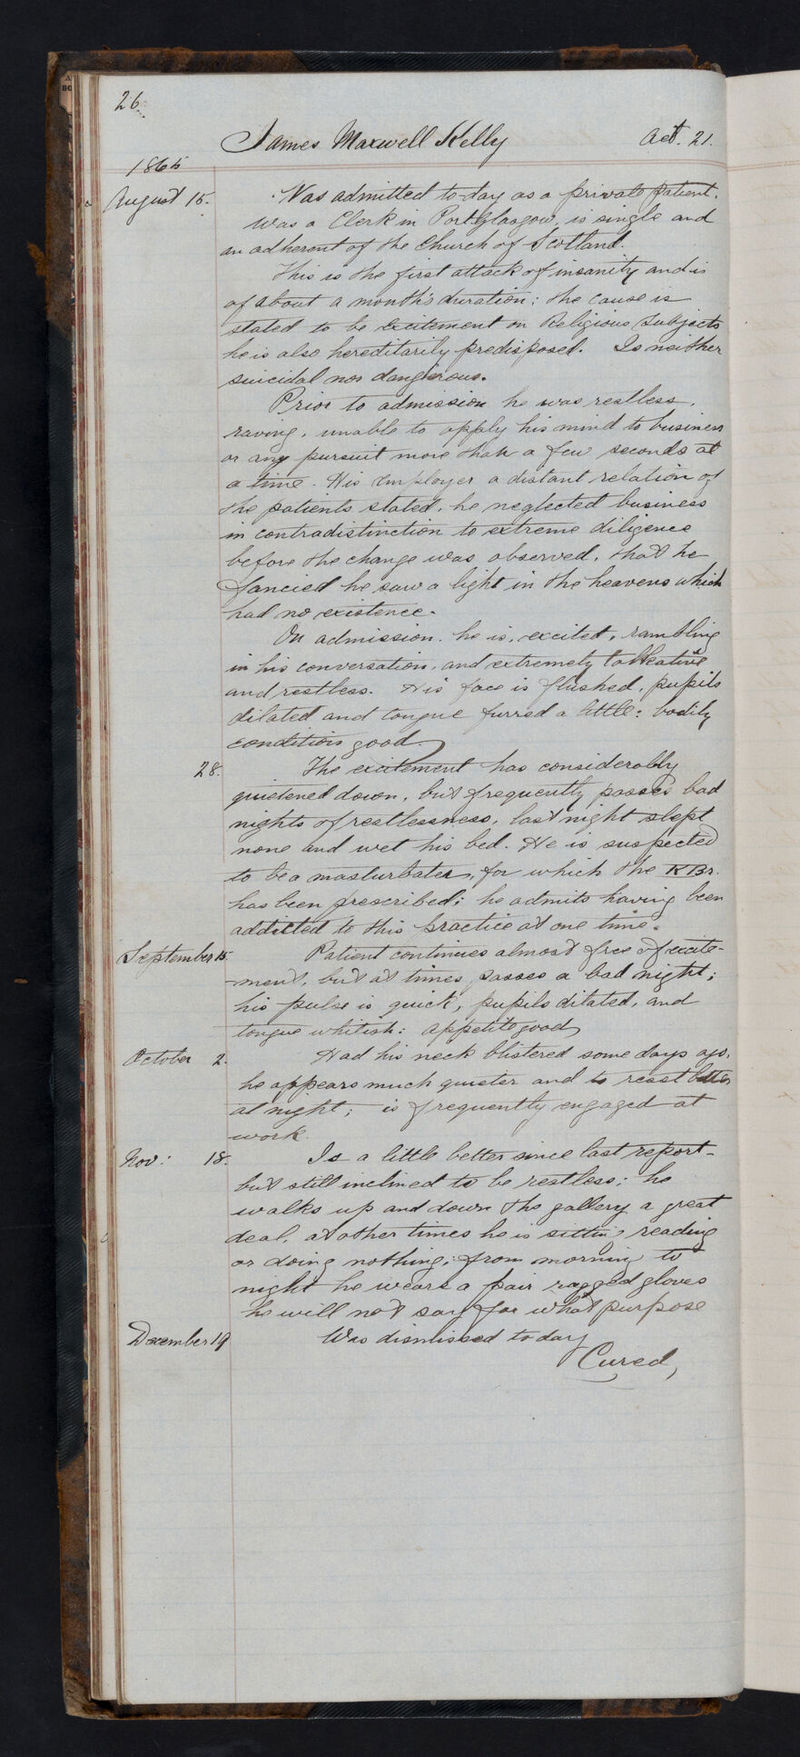 26.
James Maxwell Kelly Aet. 21.
1865
August 15. Was admitted to-day as a private patient.
Was a Clerk in Port-Glasgow, is single and
an adherent of the Church of Scotland.
This is the first attack of insanity and is
of about a month's duration: the cause is
stated to be excitement on Religious Subjects
he is also hereditarily predisposed. Is neither
suicidal nor dangerous.
Prior to admission he was restless,
raving, unable to apply his mind to business
or any pursuit more than a few seconds at
a time. His Employer a distant relation of
the patients stated, he neglected business
in contradistinction to extreme diligence
before the change was observed, that he
fancied he saw a light in the heavens which
had no existence.
On admission. he is, excited, rambling
in his conversation, and extremely talkative
and restless. His face is flushed, pupils
dilated and tongue furred a little: bodily
condition good
28. The excitement has considerably
quietened down, but frequently passes bad
nights of restlessness, last night slept
none and wet his bed. He is suspected
to be a masturbater, for which the KBr.
has been prescribed; he admits having been
addicted to this practice at one time.
September 15. Patient continues almost free of excite-
ment, but at times passes a bad night;
his pulse is quick, pupils dilated, and
tongue whitish: appetite good
October 2. Had his neck blistered some days ago,
he appears much quieter and to rest better
at night; is frequently engaged at
work.
Nov: 18. Is a little better since last report-
but still inclined to be restless; he
walks up and down the gallery a great
deal, at other times he is sitting reading
or doing nothing; from morning to
night he wears a pair ragged gloves
he will not say for what purpose
December 19 Was dismissed to day
Cured,